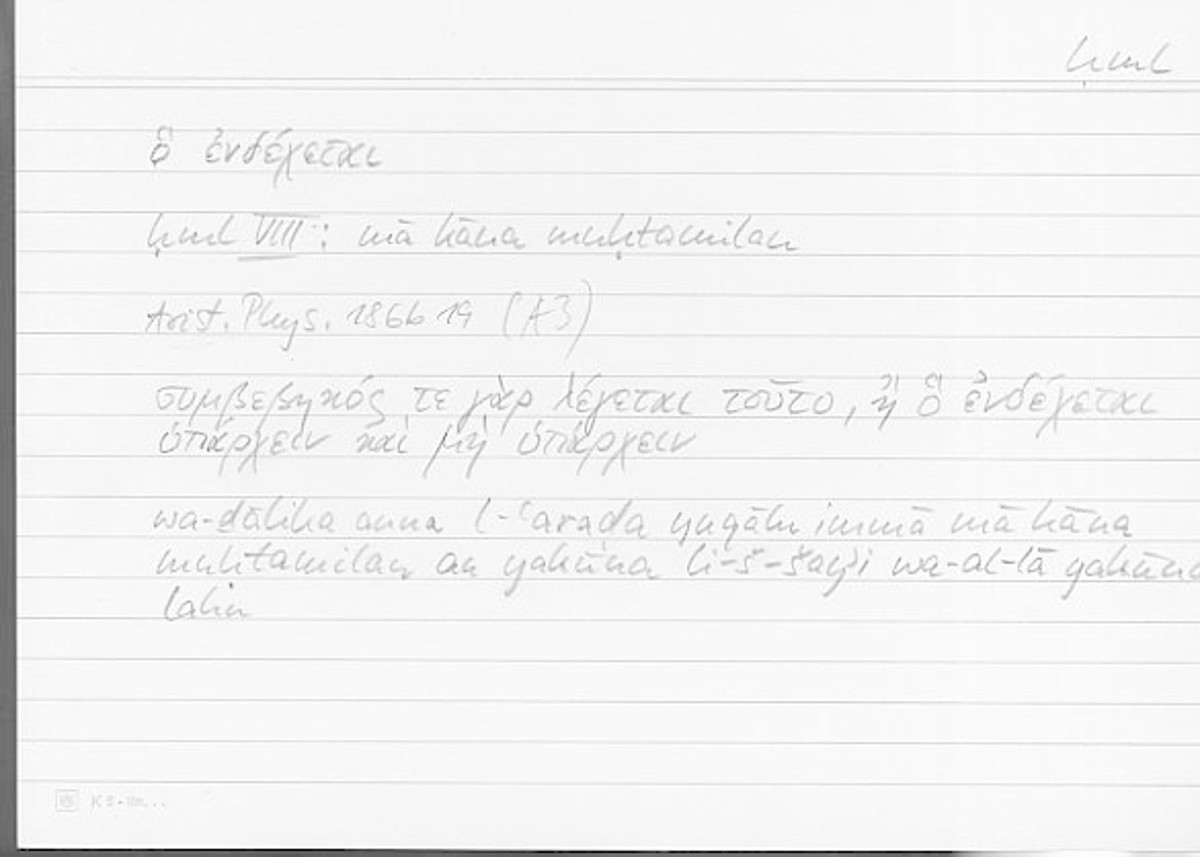 ḥml
ὃ ἐνδέχεται
ḥml VIII: mā kāna muḥtamilan
Arist. Phys. 186b 19 (A3)
συμβεβηκός τε γὰρ λέγεται τοῦτο, ἢ ὃ ἐνδέχεται
ὑπάρχειν καὶ μὴ ὑπάρχειν
wa-ḏālika anna l-ʿaraḍa yuqālu immā mā kāna
muḥtamilan an yakūna li-š-šayʾi wa-al-lā yakūna
lahū